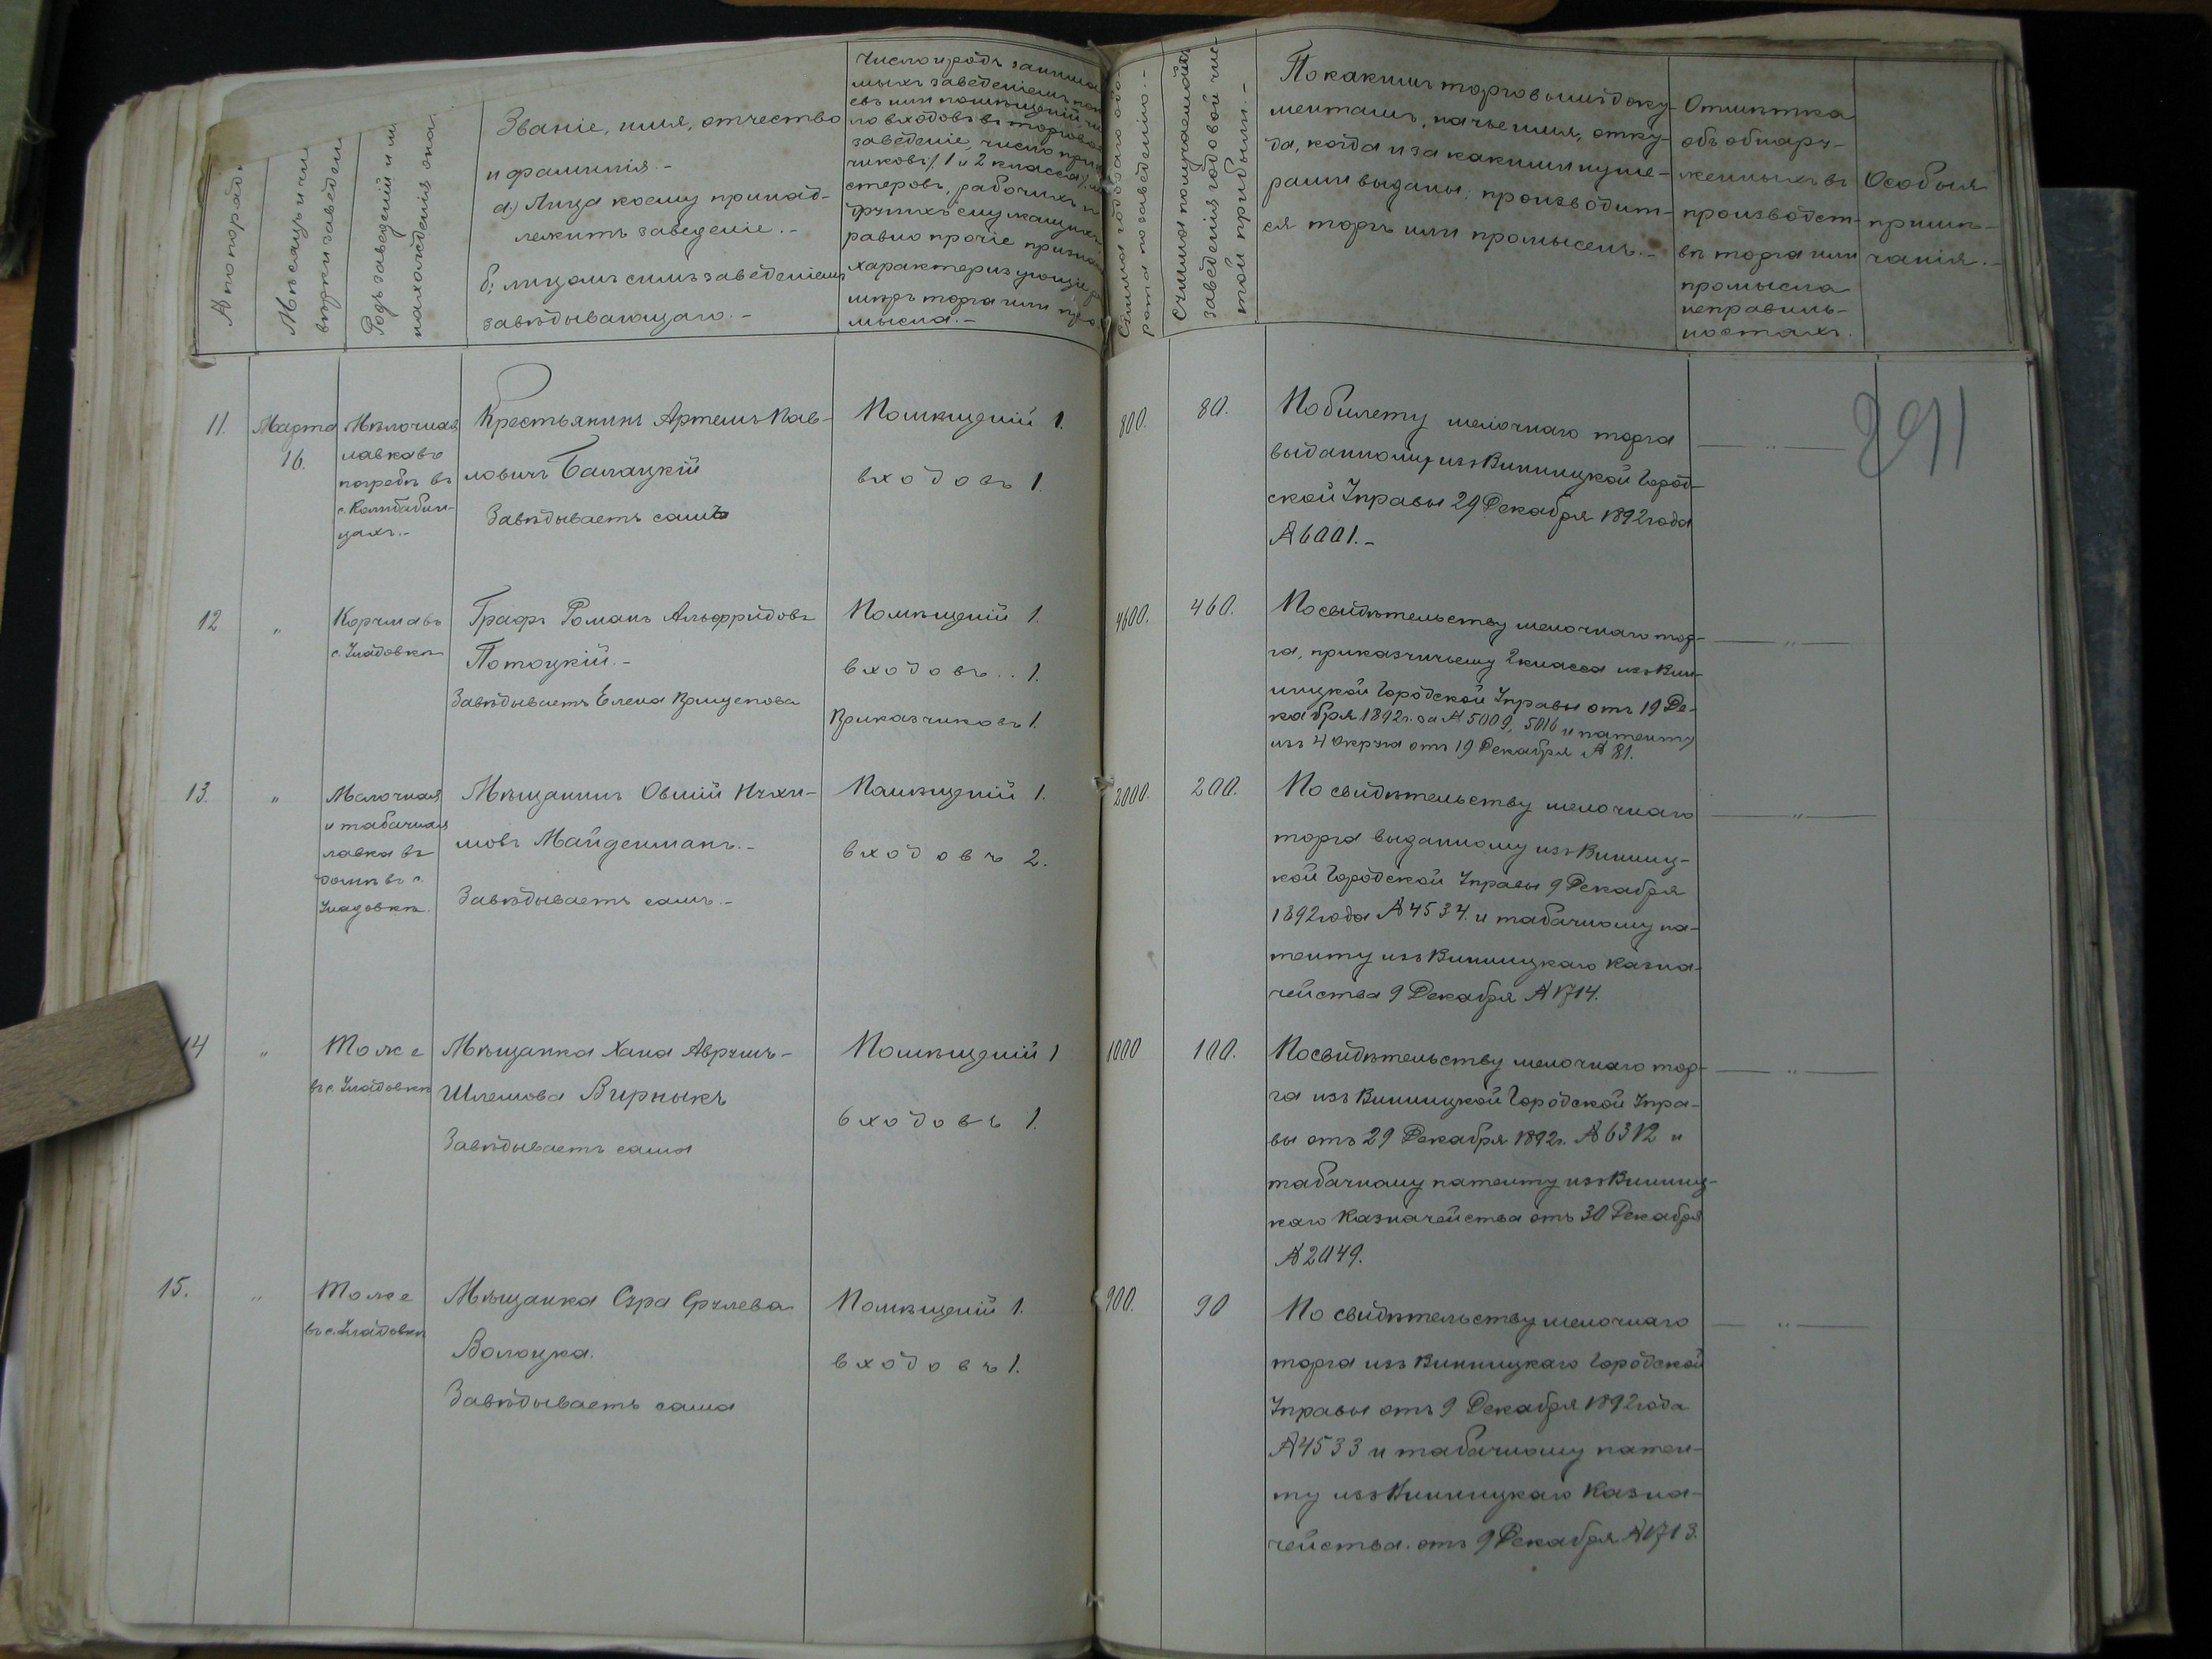 № по порядк
Мѣсяцъ и чи
вѣрки заведен
Родъ заведенія и м
нахожденія ока.
Званіе, имя, отчество
и фамилія.-
а) Лица коему принад-
лежитъ заведеніе.-
б, лицомъ симъ заведеніемъ
завѣдывающаго.-
Число и родъ занима
мыхъ заведеніемъ
евъ или помѣщеній чи
ло входовъ въ торгово
заведеніе, число прик
чиковъ/, 1 и 2 класса/,
стеровъ, рабочихъ и
другихъ служащихъ
равно прочіе признак
характеризующіе р
мѣръ торга или про
мысла.-
Сумма годового обо-
рота по заведенію.-
Сумма получаемой
заведенія годовой чис-
той прибыли.-
По какимъ торговымъ доку-
ментамъ, на чье имя, отку-
да, когда и за какими нуме-
рами выданы: производит-
ся торгъ или промыселъ.-
Отмѣтка
объ обнару-
женныхъ въ
производст-
вѣ торга или
промысла
неправиль-
ностяхъ.
Особыя
примѣ-
чанія.-
291
11.
Марта
16.
Мѣлочная
лавка въ
погребѣ въ
с. Колыбабин-
цахъ.-
Крестьянинъ Артемъ Пав-
ловичъ Балацкій
Завѣдываетъ самъ
Помѣщеній 1.
входовъ 1.
800.
80.
По билету мелочнаго торга
выданному изъ Винницкой Город-
ской Управы 29 Декабря 1892 года
№ 6001.-
— „ —
12
„
Корчма въ
с. Уладовкѣ
Графъ Романъ Альфридовъ
Потоцкій.-
Завѣдываетъ Елена Прищепова
Помѣщеній 1.
входовъ.. 1.
Приказчиковъ 1.
4600.
460.
По свидѣтельству мелочнаго тор-
га, приказчичьему 2 класса изъ Вин-
ницкой Городской Управы отъ 19 Де-
кабря 1892 г. за № 5009, 5016 и патенту
изъ 4 округа отъ 19 Декабря № 81.
— „ —
13.
„
Мелочная
и табачная
лавка въ
домѣ въ с.
Уладовкѣ.
Мѣщанинъ Овшій Нухи-
мовъ Майденманъ.-
Завѣдываетъ самъ.-
Помѣщеній 1.
входовъ 2.
2000.
200.
По свидѣтельству мелочнаго
торга выданному изъ Винниц-
кой Городской Управы 9 Декабря
1892 года № 4534. и табачному па-
тенту изъ Винницкаго Казна-
чейства 9 Декабря № 1714.
— „ —
14
„
Тоже
въ с. Уладовкѣ
Мѣщанка Хана Аврумъ-
Шлемова Вирныкъ
Завѣдываетъ сама
Помѣщеній 1
входовъ 1.
1000
100.
По свидѣтельству мелочнаго тор-
га изъ Винницкой Городской Упра-
вы отъ 29 Декабря 1892 г. № 6312 и
табачному патенту изъ Винниц-
каго Казначейства отъ 30 Декабря
№ 2049.
— „ —
15.
„
Тоже
въ с. Уладовкѣ
Мѣщанка Сура Срулева
Волоцка.
Завѣдываетъ сама
Помѣщеній 1.
входовъ 1.
900.
90
По свидѣтельству мелочнаго
торга изъ Винницкаго Городской
Управы отъ 9 Декабря 1892 года
№ 4533 и табачному патен-
ту изъ Винницкаго Казна-
чейства. отъ 9 Декабря № 1713.
— „ —